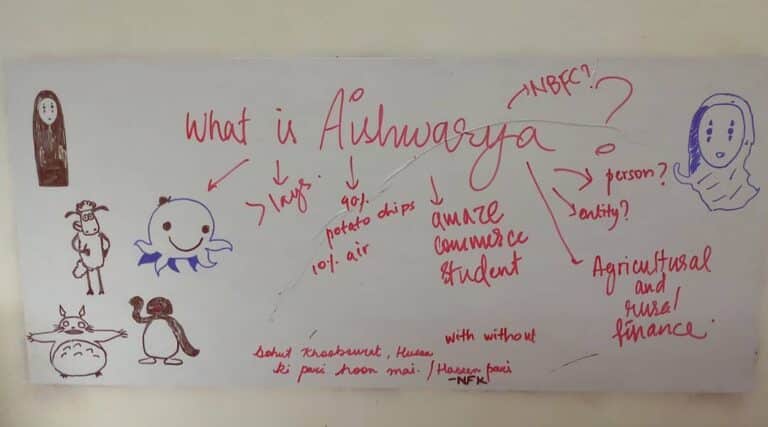 What is Aishwarya ?
NBFC?
person?
entity?
> lays.
90%
potato chips
10% air
amaze
commerce
student
Agricultural
and
rural
finance.
with without
Bohut Khoobsurat, Husn
ki pari hoon mai. / Haseen pari
-NFK